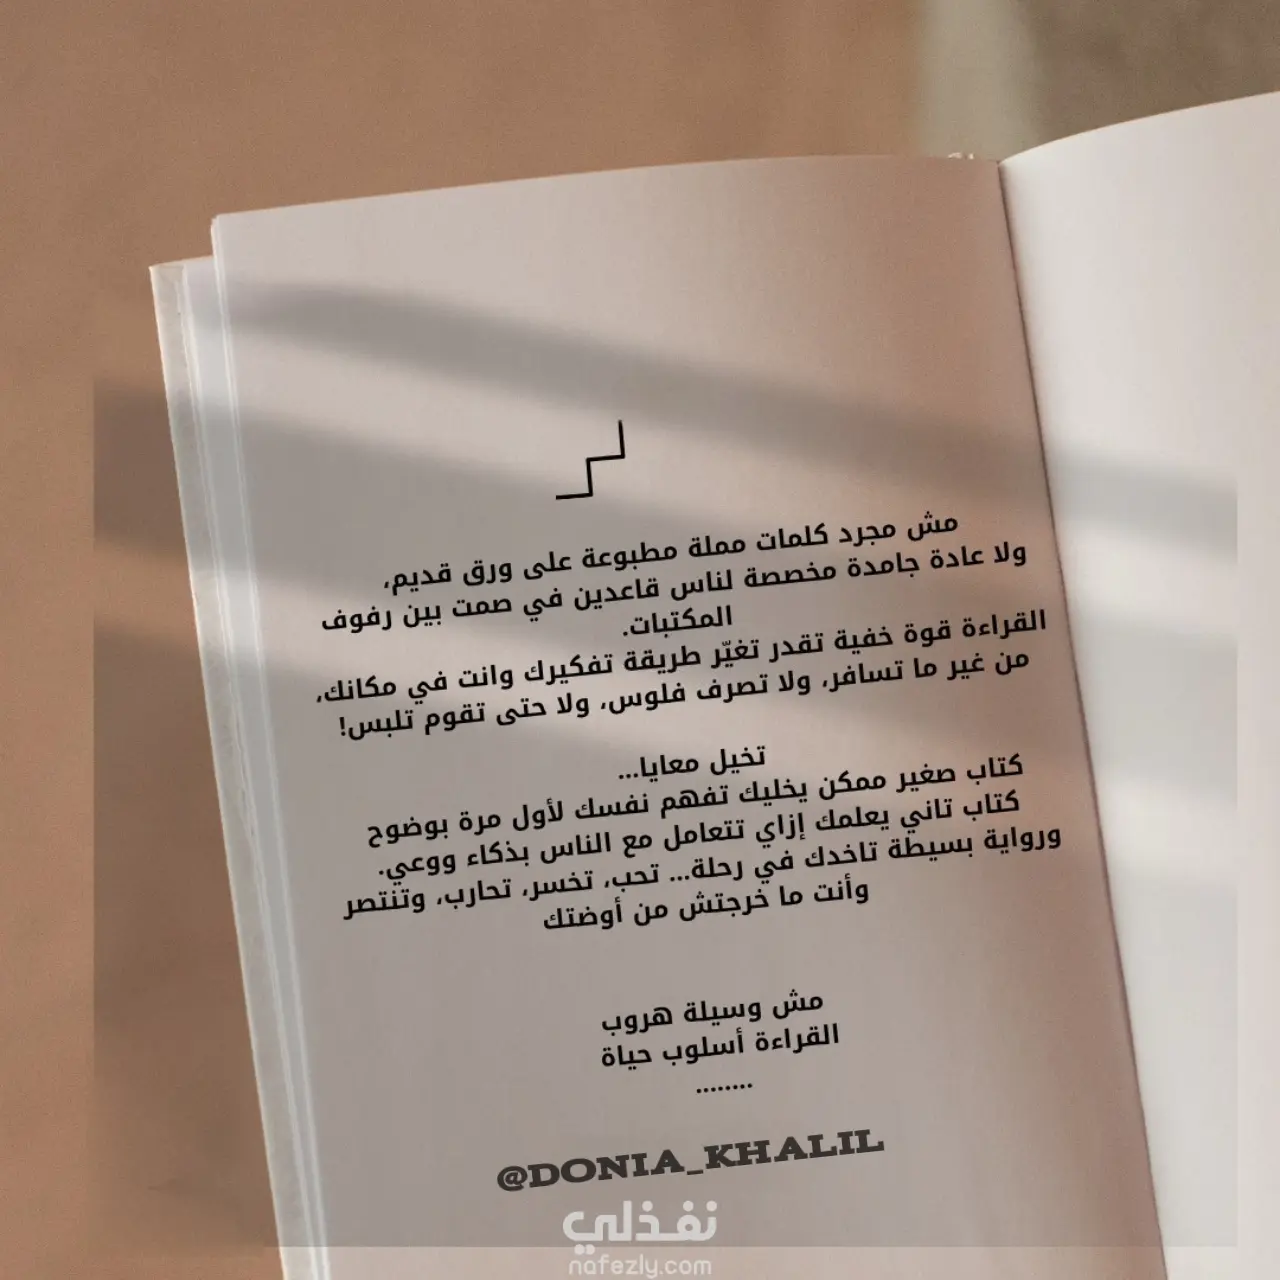 مش مجرد كلمات مملة مطبوعة على ورق قديم،
ولا عادة جامدة مخصصة لناس قاعدين في صمت بين رفوف
المكتبات.
القراءة قوة خفية تقدر تغيّر طريقة تفكيرك وانت في مكانك،
من غير ما تسافر، ولا تصرف فلوس، ولا حتى تقوم تلبس!
تخيل معايا...
كتاب صغير ممكن يخليك تفهم نفسك لأول مرة بوضوح
كتاب تاني يعلمك إزاي تتعامل مع الناس بذكاء ووعي.
ورواية بسيطة تاخدك في رحلة... تحب، تخسر، تحارب، وتنتصر
وأنت ما خرجتش من أوضتك
مش وسيلة هروب
القراءة أسلوب حياة
........
@DONIA_KHALIL
نفذلي
nafezly.com